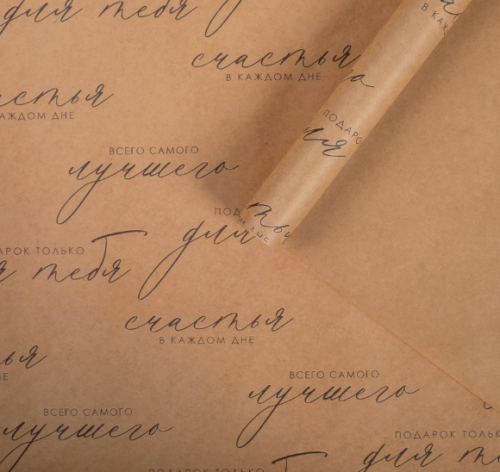 для тебя
счастья
В КАЖДОМ ДНЕ
счастья
КАЖДОМ ДНЕ
ВСЕГО САМОГО
лучшего
ПОДАРОК ТОЛЬКО
для
тебя
счастья
В КАЖДОМ ДНЕ
ВСЕГО САМОГО
лучшего
ВСЕГО САМОГО
лучшего
ПОДАРОК ТОЛЬКО
для
ПОДАРОК ТОЛЬКО